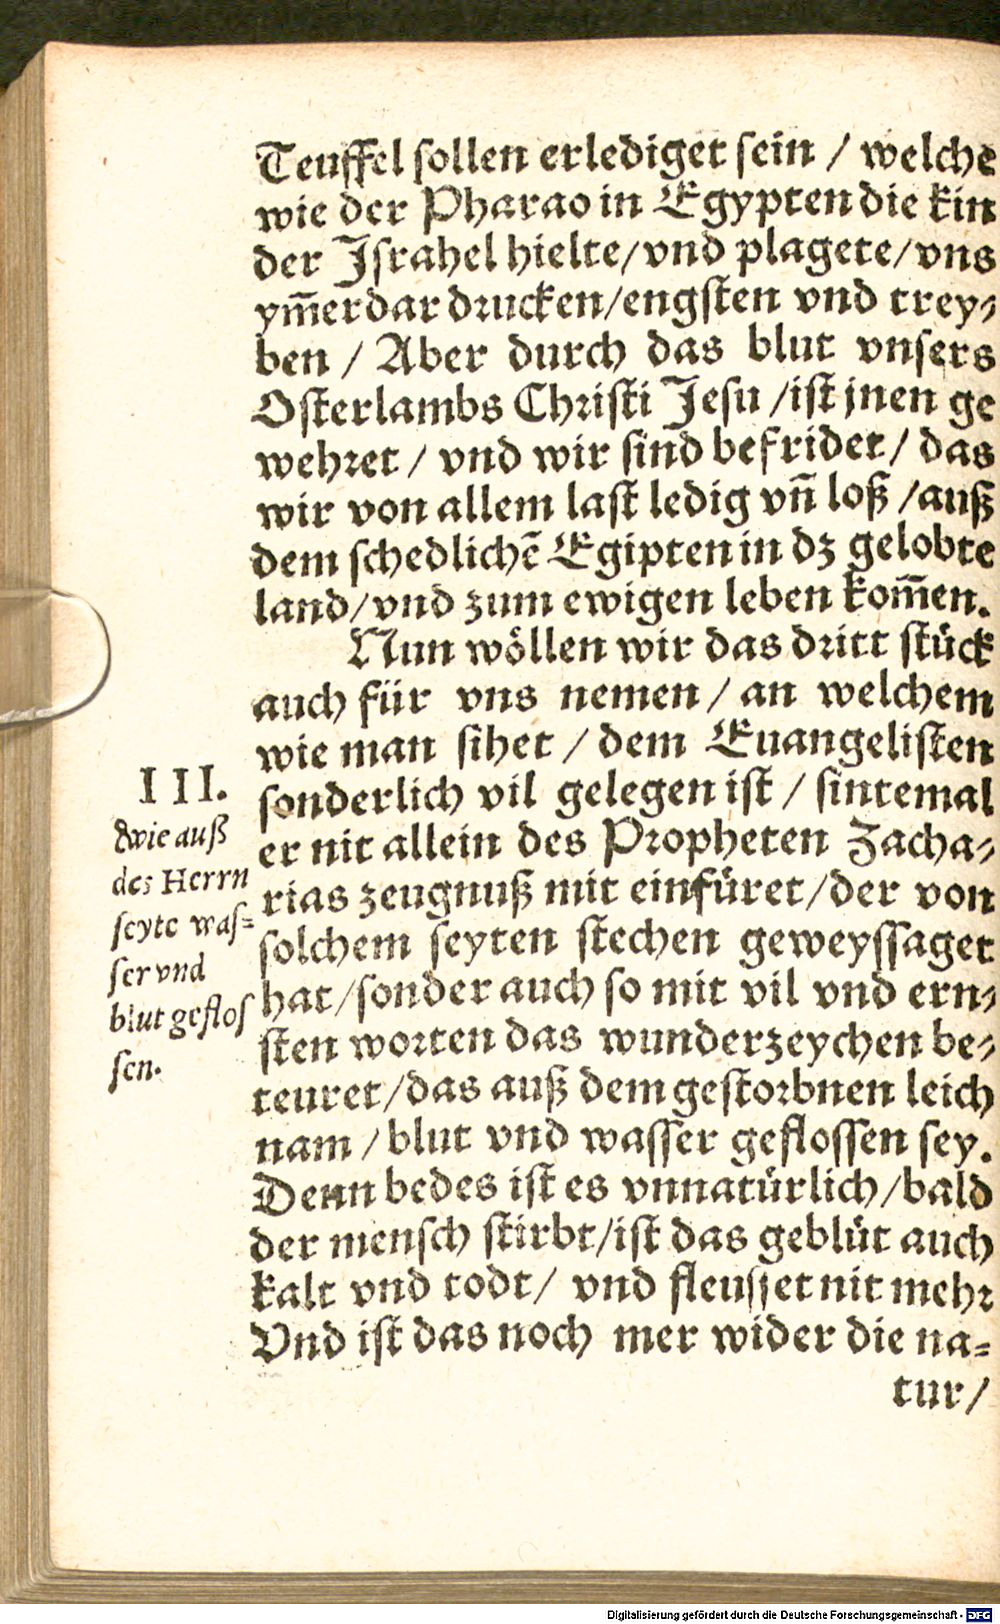 Teuffel sollen erlediget sein / welche
wie der Pharao in Egypten die kin
der Jsrahel hielte/vnd plagete/vns
ym̃erdar drucken/engsten vnd trey⸗
ben / Aber durch das blut vnsers
Osterlambs Christi Jesu /ist jnen ge
wehret / vnd wir sind befridet / das
wir von allem last ledig vñ loß /auß
dem schedlichẽ Egipten in dz gelobte
land/vnd zum ewigen leben kom̃en.
Nun wöllen wir das dritt stück
auch für vns nemen / an welchem
wie man sihet / dem Euangelisten
sonderlich vil gelegen ist / sintemal
er nit allein des Propheten Zacha⸗
rias zeugnuß mit einfüret/der von
solchem seyten stechen geweyssaget
hat/sonder auch so mit vil vnd ern⸗
sten worten das wunderzeychen be⸗
teuret/das auß dem gestorbnen leich
nam / blut vnd wasser geflossen sey.
Denn bedes ist es vnnatürlich/bald
der mensch stirbt/ist das geblüt auch
kalt vnd todt/ vnd fleusset nit mehr
Vnd ist das noch mer wider die na⸗
tur/
III.
wie auß
des Herrn
seyte was⸗
ser vnd
blut geflos
sen.
Digitalisierung gefördert durch die Deutsche Forschungsgemeinschaft - DFG